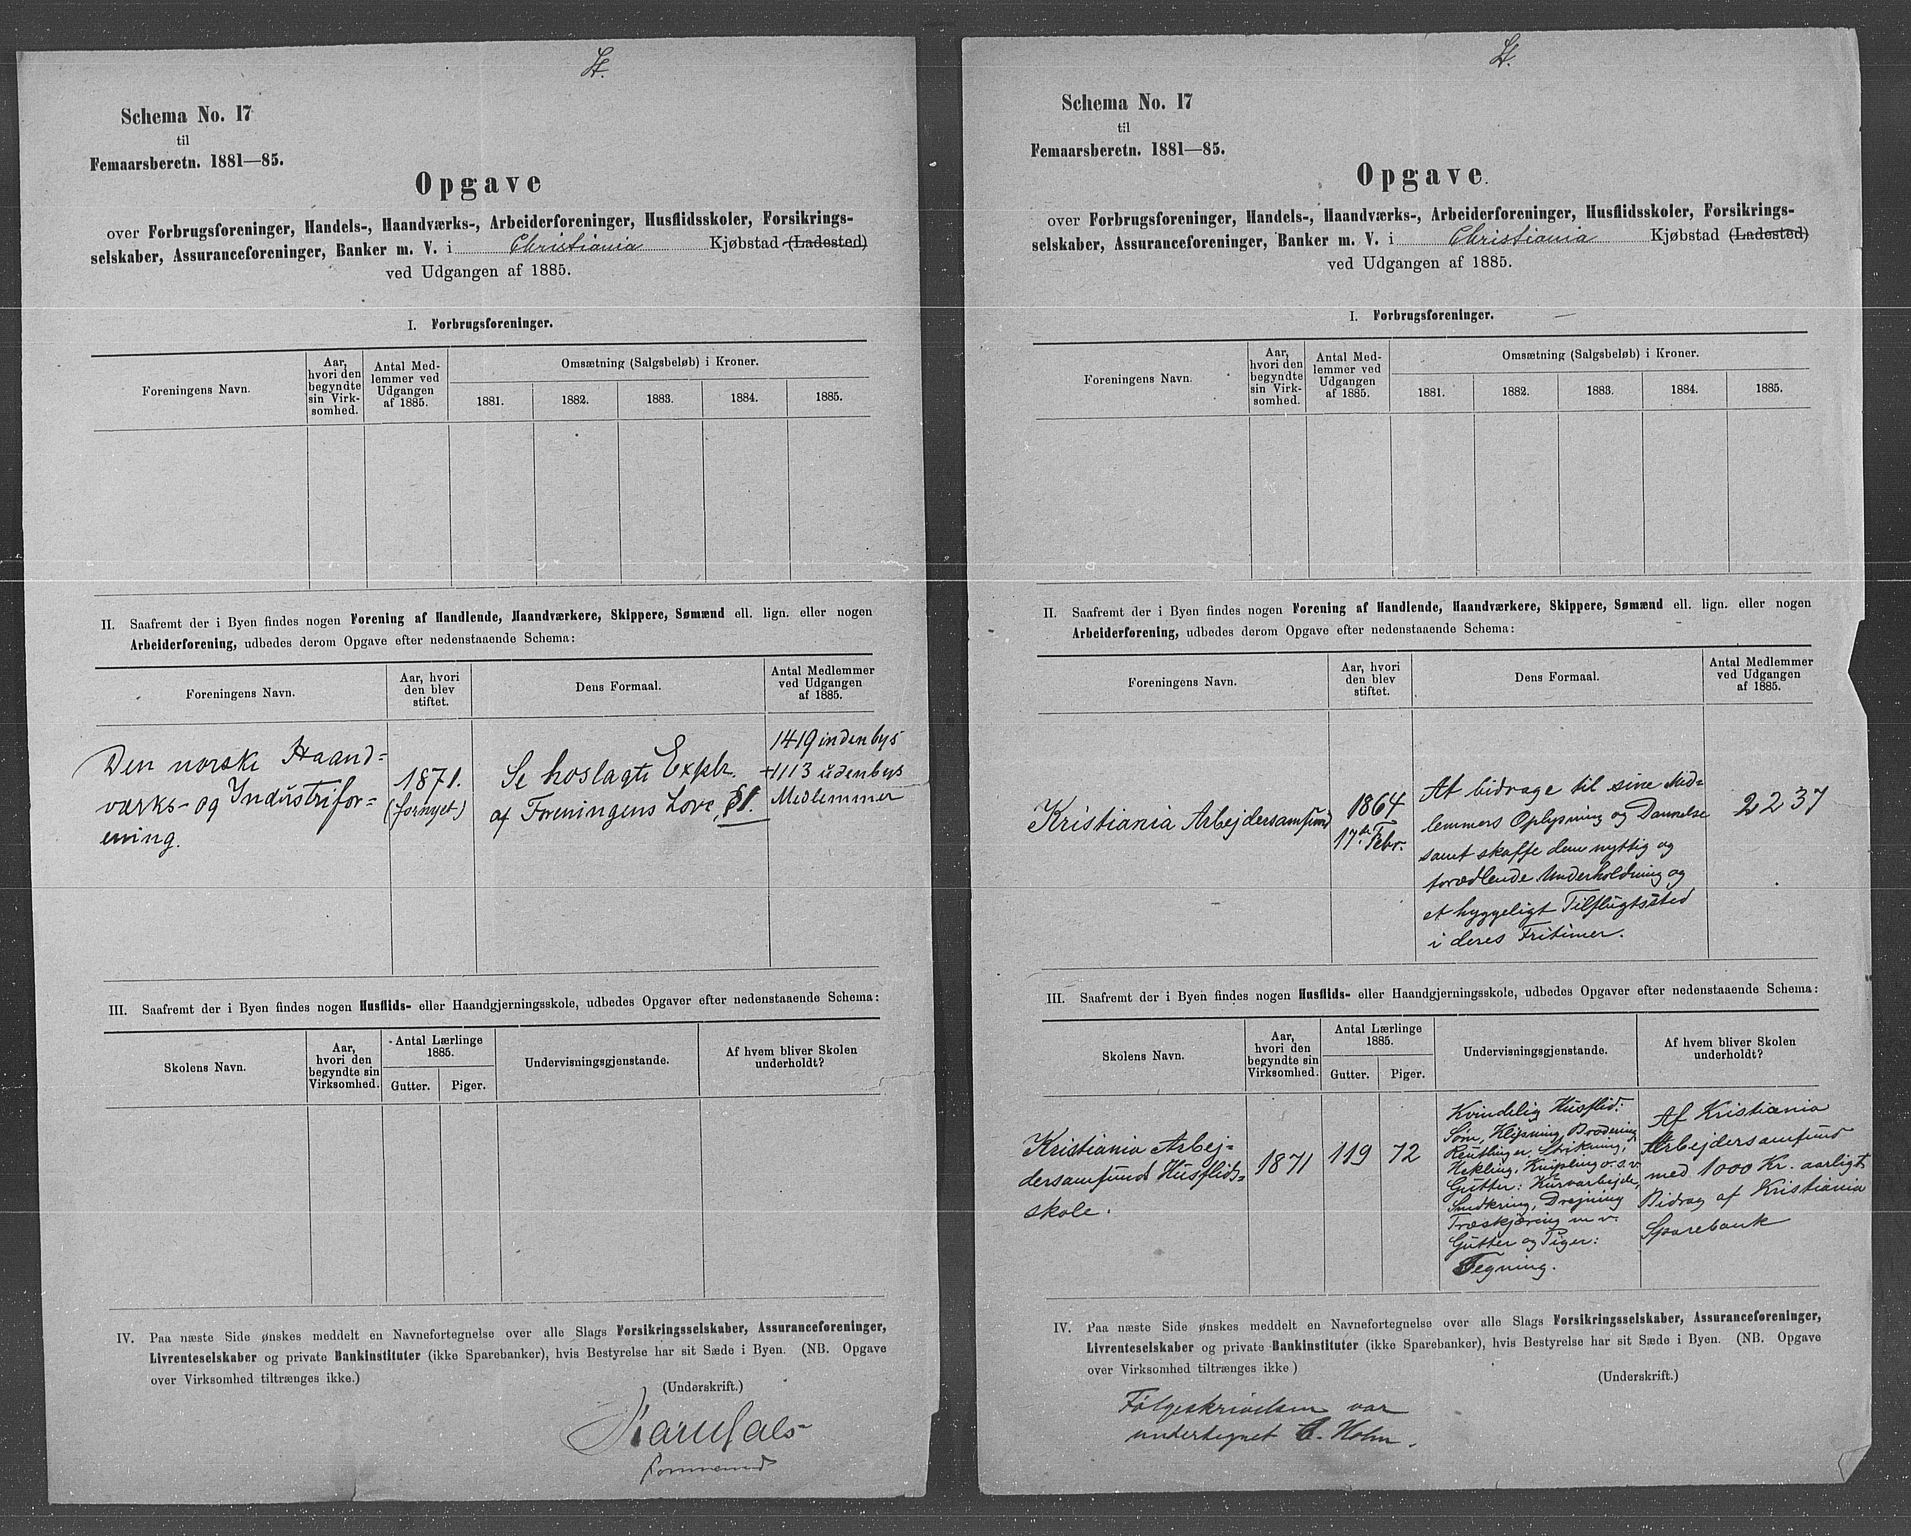 St.
Schema No. 17
til
Femaarsberetn. 1881—85.
Opgave
over Forbrugsforeninger, Handels-, Haandværks-, Arbeiderforeninger, Husflidsskoler, Forsikrings-
selskaber, Assuranceforeninger, Banker m. V. i Christiania Kjøbstad (Ladested)
ved Udgangen af 1885.
I. Forbrugsforeninger.
Foreningens Navn.
Aar,
hvori den
begyndte
sin Virk-
somhed.
Antal Med-
lemmer ved
Udgangen
af 1885.
Omsætning (Salgsbeløb) i Kroner.
1881. 1882. 1883. 1884. 1885.
II. Saafremt der i Byen findes nogen Forening af Handlende, Haandværkere, Skippere, Sømænd ell. lign. eller nogen
Arbeiderforening, udbedes derom Opgave efter nedenstaaende Schema:
Foreningens Navn.
Aar, hvori
den blev
stiftet.
Dens Formaal.
Antal Medlemmer
ved Udgangen
af 1885.
Den norske Haand-
værks- og Industrifor-
ening.
1871.
(fornyet)
Se hoslagte Explr.
af Foreningens Love, §1.
1419 indenbys
+1113 udenbys
Medlemmer
III. Saafremt der i Byen findes nogen Husflids- eller Haandgjerningsskole, udbedes Opgaver efter nedenstaaende Schema:
Skolens Navn.
Aar,
hvori den
begyndte sin
Virksomhed.
Antal Lærlinge
1885.
Gutter. Piger.
Undervisningsgjenstande.
Af hvem bliver Skolen
underholdt?
IV. Paa næste Side ønskes meddelt en Navnefortegnelse over alle Slags Forsikringsselskaber, Assuranceforeninger,
Livrenteselskaber og private Bankinstituter (ikke Sparebanker), hvis Bestyrelse har sit Sæde i Byen. (NB. Opgave
over Virksomhed tiltrænges ikke.)
(Underskrift.)
Formand
St.
Schema No. 17
til
Femaarsberetn. 1881—85.
Opgave.
over Forbrugsforeninger, Handels-, Haandværks-, Arbeiderforeninger, Husflidsskoler, Forsikrings-
selskaber, Assuranceforeninger, Banker m. V. i Christiania Kjøbstad (Ladested)
ved Udgangen af 1885.
I. Forbrugsforeninger. —
Foreningens Navn.
Aar,
hvori den
begyndte
sin Virk-
somhed.
Antal Med-
lemmer ved
Udgangen
af 1885.
Omsætning (Salgsbeløb) i Kroner.
1881. 1882. 1883. 1884. 1885.
II. Saafremt der i Byen findes nogen Forening af Handlende, Haandværkere, Skippere, Sømænd ell. lign. eller nogen
Arbeiderforening, udbedes derom Opgave efter nedenstaaende Schema:
Foreningens Navn.
Aar, hvori
den blev
stiftet.
Dens Formaal.
Antal Medlemmer
ved Udgangen
af 1885.
Kristiania Arbejdersamfund
1864
17de Febr.
At bidrage til sine Med-
lemmers Oplysning og Dannelse
samt skaffe dem nyttig og
forædlende Underholdning og
et hyggeligt Tilflugtssted
i deres Fritimer.
2237
III. Saafremt der i Byen findes nogen Husflids- eller Haandgjerningsskole, udbedes Opgaver efter nedenstaaende Schema:
Skolens Navn.
Aar,
hvori den
begyndte sin
Virksomhed.
Antal Lærlinge
1885.
Gutter. Piger.
Undervisningsgjenstande.
Af hvem bliver Skolen
underholdt?
Kristiania Arbej-
dersamfunds Husflids-
skole.
1871
119
72
Kvindelig Husflid:
Søm, Klipning, Brodering
Strikning,
Hekling, Knipling o.s.v.
Gutter: Kurvarbejde,
Snedkring, Drejning
Træskjæring m. v.
Gutter og Piger:
Tegning.
Af Kristiania
Arbejdersamfund
med 1000 Kr. aarligt
Bidrag af Kristiania
Sparebank
IV. Paa næste Side ønskes meddelt en Navnefortegnelse over alle Slags Forsikringsselskaber, Assuranceforeninger,
Livrenteselskaber og private Bankinstituter (ikke Sparebanker), hvis Bestyrelse har sit Sæde i Byen. (NB. Opgave
over Virksomhed tiltrænges ikke)
(Underskrift.)
Følgeskrivelsen var
undertegnet C. Holm.